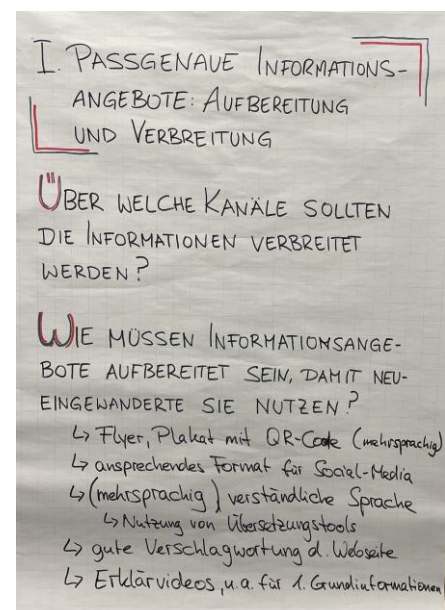 I. PASSGENAUE INFORMATIONS-
ANGEBOTE: AUFBEREITUNG
UND VERBREITUNG
ÜBER WELCHE KANÄLE SOLLTEN
DIE INFORMATIONEN VERBREITET
WERDEN?
WIE MÜSSEN INFORMATIONSANGE-
BOTE AUFBEREITET SEIN, DAMIT NEU-
EINGEWANDERTE SIE NUTZEN?
↳ Flyer, Plakat mit QR-Code (mehrsprachig)
↳ ansprechendes Format für Social-Media
↳ (mehrsprachig) verständliche Sprache
↳ Nutzung von Übersetzungstools
↳ gute Verschlagwortung d. Webseite
↳ Erklärvideos, u.a. für 1. Grundinformationen